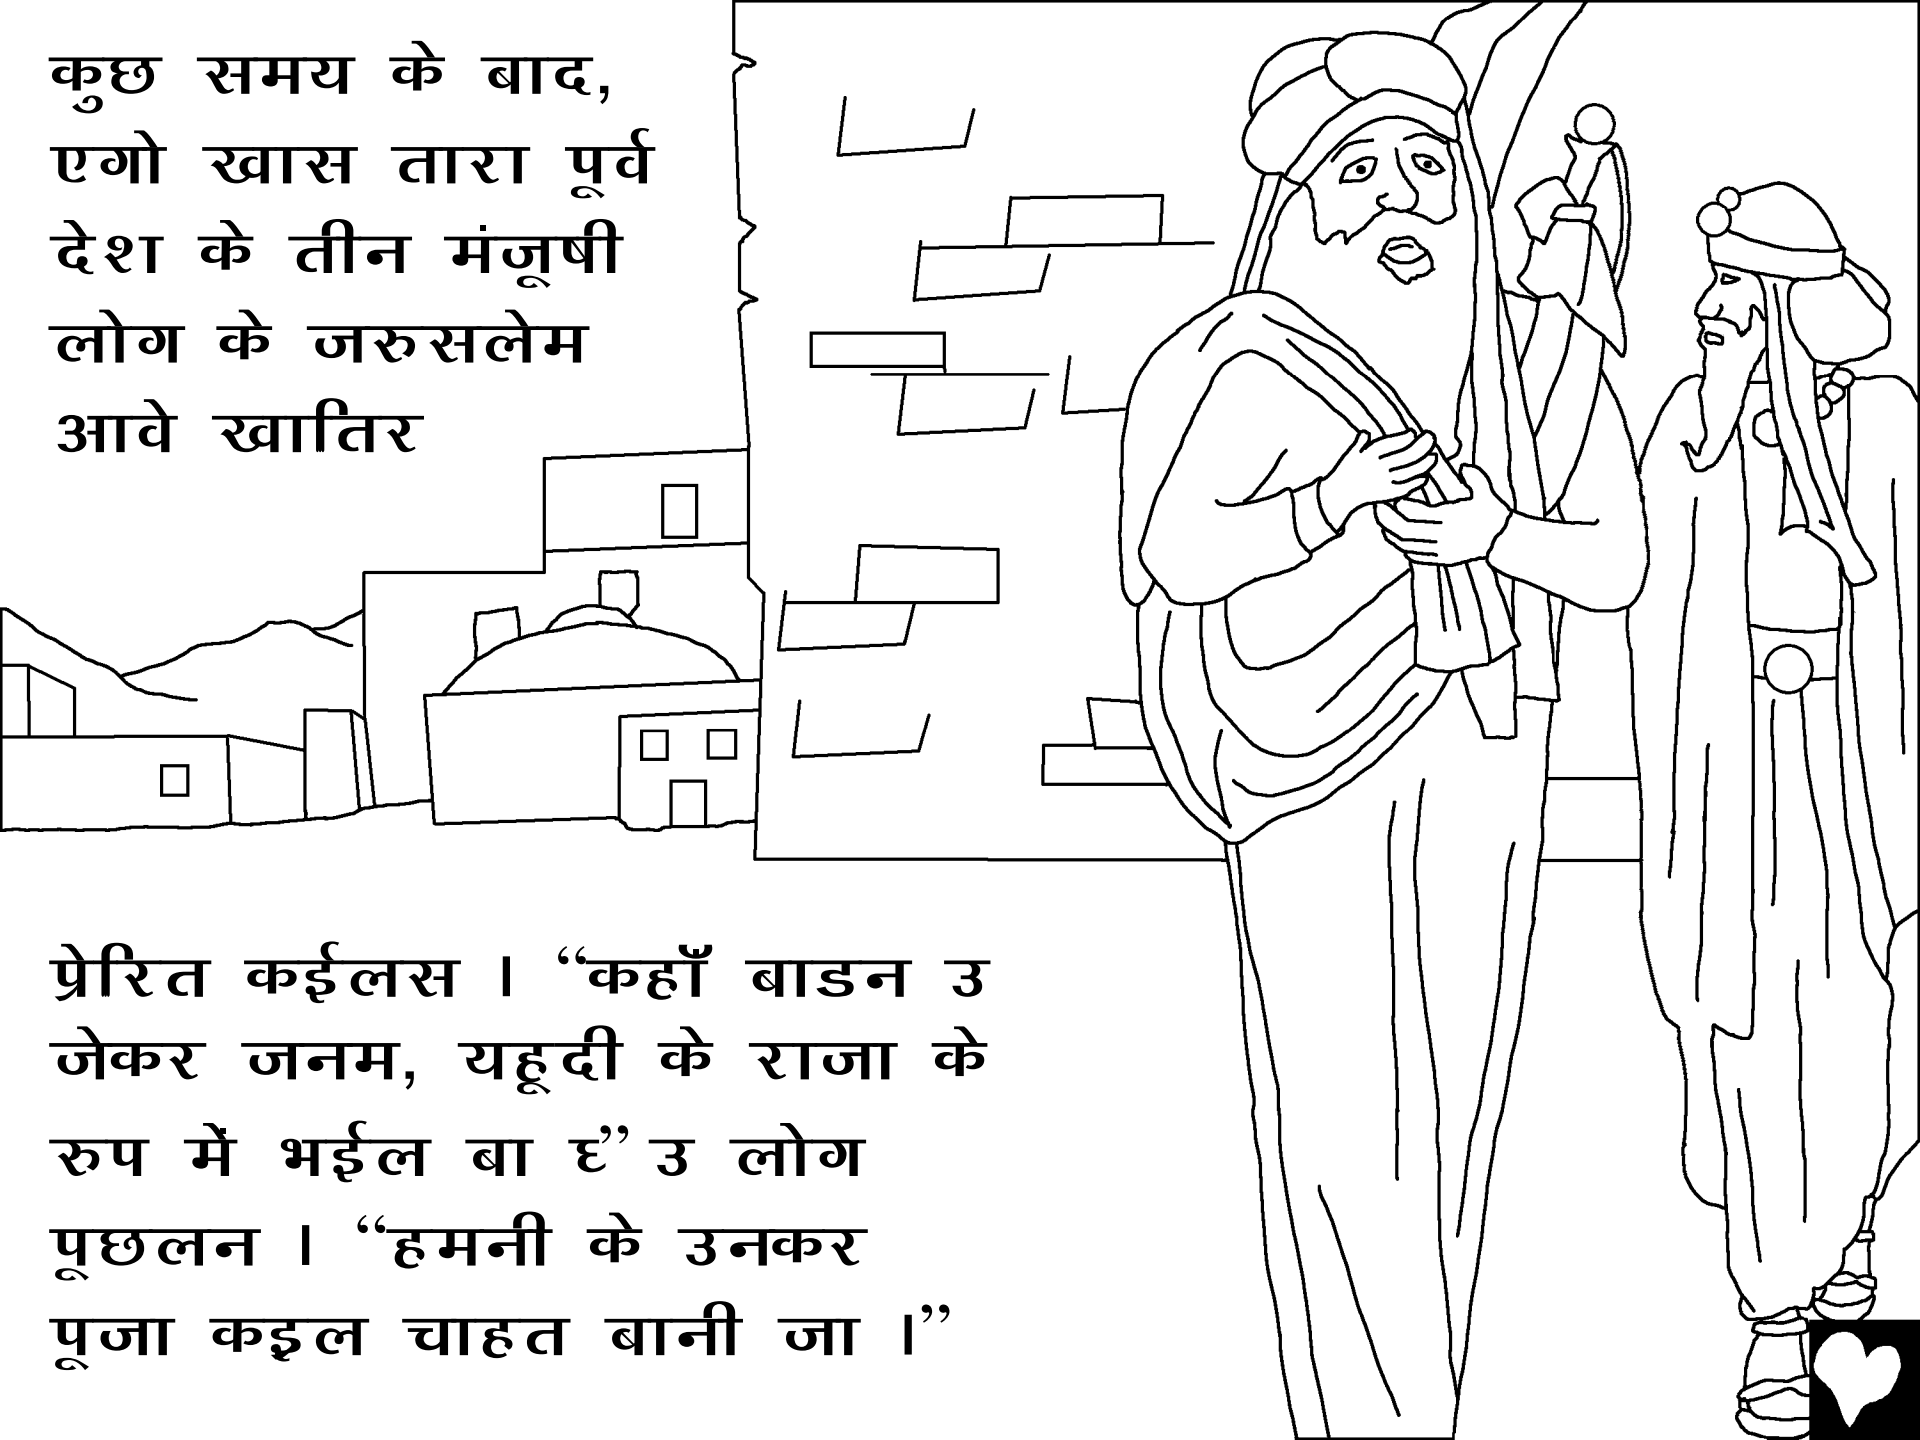 कुछ समय के बाद,
एगो खास तारा पूर्व
देश के तीन मंजूषी
लोग के जरुसलेम
आवे खातिर
प्रेरित कईलस । “कहाँ बाडन उ
जेकर जनम, यहूदी के राजा के
रुप में भईल बा घ्” उ लोग
पूछलन । “हमनी के उनकर
पूजा कइल चाहत बानी जा ।”